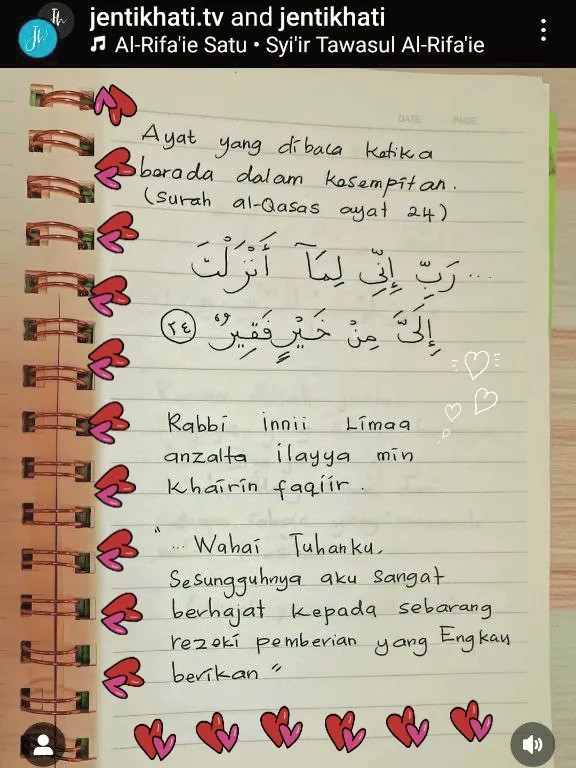 jentikhati.tv and jentikhati
Al-Rifa'ie Satu • Syi'ir Tawasul Al-Rifa'ie
DATE PAGE
Ayat yang dibaca ketika
berada dalam kesempitan.
(surah al-Qasas ayat 24)
... رَبِّ إِنِّي لِمَآ أَنْزَلْتَ
إِلَىَّ مِنْ خَيْرٍ فَقِيرٌ ٢٤
Rabbi innii Limaa
anzalta ilayya min
khairin faqiir.
"... Wahai Tuhanku,
Sesungguhnya aku sangat
berhajat kepada sebarang
rezeki pemberian yang Engkau
berikan"